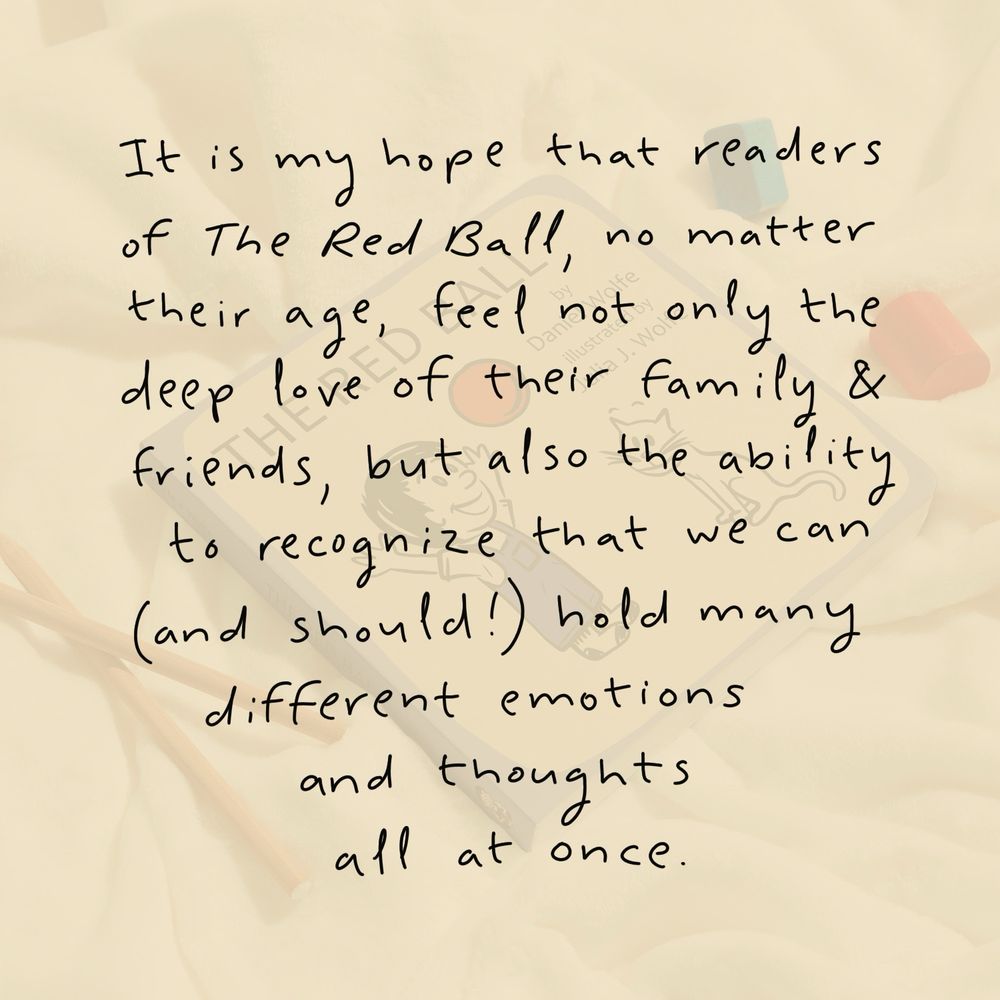 It is my hope that readers
of The Red Ball, no matter
their age, feel not only the
deep love of their family &
friends, but also the ability
to recognize that we can
(and should!) hold many
different emotions
and thoughts
all at once.
THE RED BALL
by
Wolfe
illustrated by
J. Wolfe